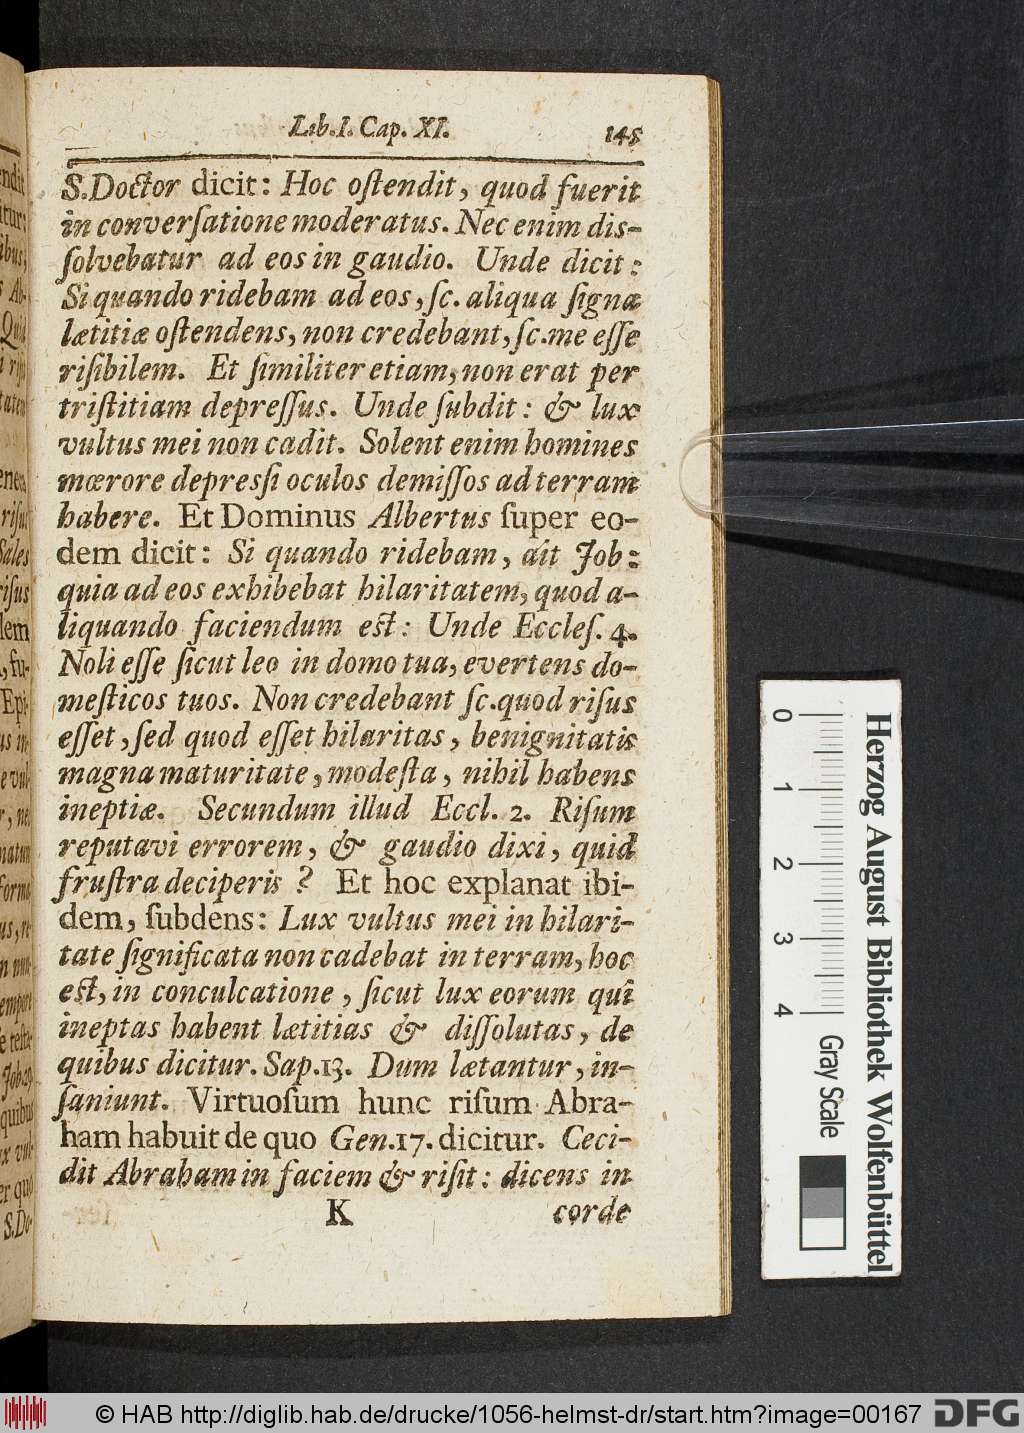 Lib. I. Cap. XI. 145
S. Doctor dicit: Hoc oſtendit, quod fuerit
in converſatione moderatus. Nec enim diſ-
ſolvebatur ad eos in gaudio. Unde dicit:
Si quando ridebam ad eos, ſc. aliqua ſigna
lætitiæ oſtendens, non credebant, ſc. me eſſe
riſibilem. Et ſimiliter etiam, non erat per
triſtitiam depreſſus. Unde ſubdit: & lux
vultus mei non cadit. Solent enim homines
mœrore depreſſi oculos demiſſos ad terram
habere. Et Dominus Albertus ſuper eo-
dem dicit: Si quando ridebam, ait Job:
quia ad eos exhibebat hilaritatem, quod a-
liquando faciendum eſt: Unde Eccleſ. 4.
Noli eſſe ſicut leo in domo tua, evertens do-
meſticos tuos. Non credebant ſc. quod riſus
eſſet, ſed quod eſſet hilaritas, benignitatis
magna maturitate, modeſta, nihil habens
ineptiæ. Secundum illud Eccl. 2. Riſum
reputavi errorem, & gaudio dixi, quid
fruſtra deciperis? Et hoc explanat ibi-
dem, ſubdens: Lux vultus mei in hilari-
tate ſignificata non cadebat in terram, hoc
eſt, in conculcatione, ſicut lux eorum qui
ineptas habent lætitias & diſſolutas, de
quibus dicitur. Sap. 13. Dum lætantur, in-
ſaniunt. Virtuoſum hunc riſum Abra-
ham habuit de quo Gen. 17. dicitur. Ceci-
dit Abraham in faciem & riſit: dicens in
K corde
0 1 2 3 4
Gray Scale
Herzog August Bibliothek Wolfenbüttel
© HAB http://diglib.hab.de/drucke/1056-helmst-dr/start.htm?image=00167
DFG